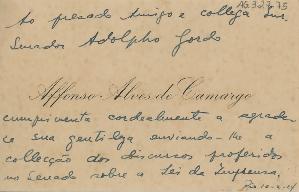 AG.327.75
Ao presado amigo e collega Snr.
Senador Adolpho Gordo
Affonso Alves de Camargo
cumprimenta cordealmente e agrade-
ce sua gentileza enviando-lhe a
collecção dos discursos proferidos
no Senado sobre a Lei da Imprensa.
Rio